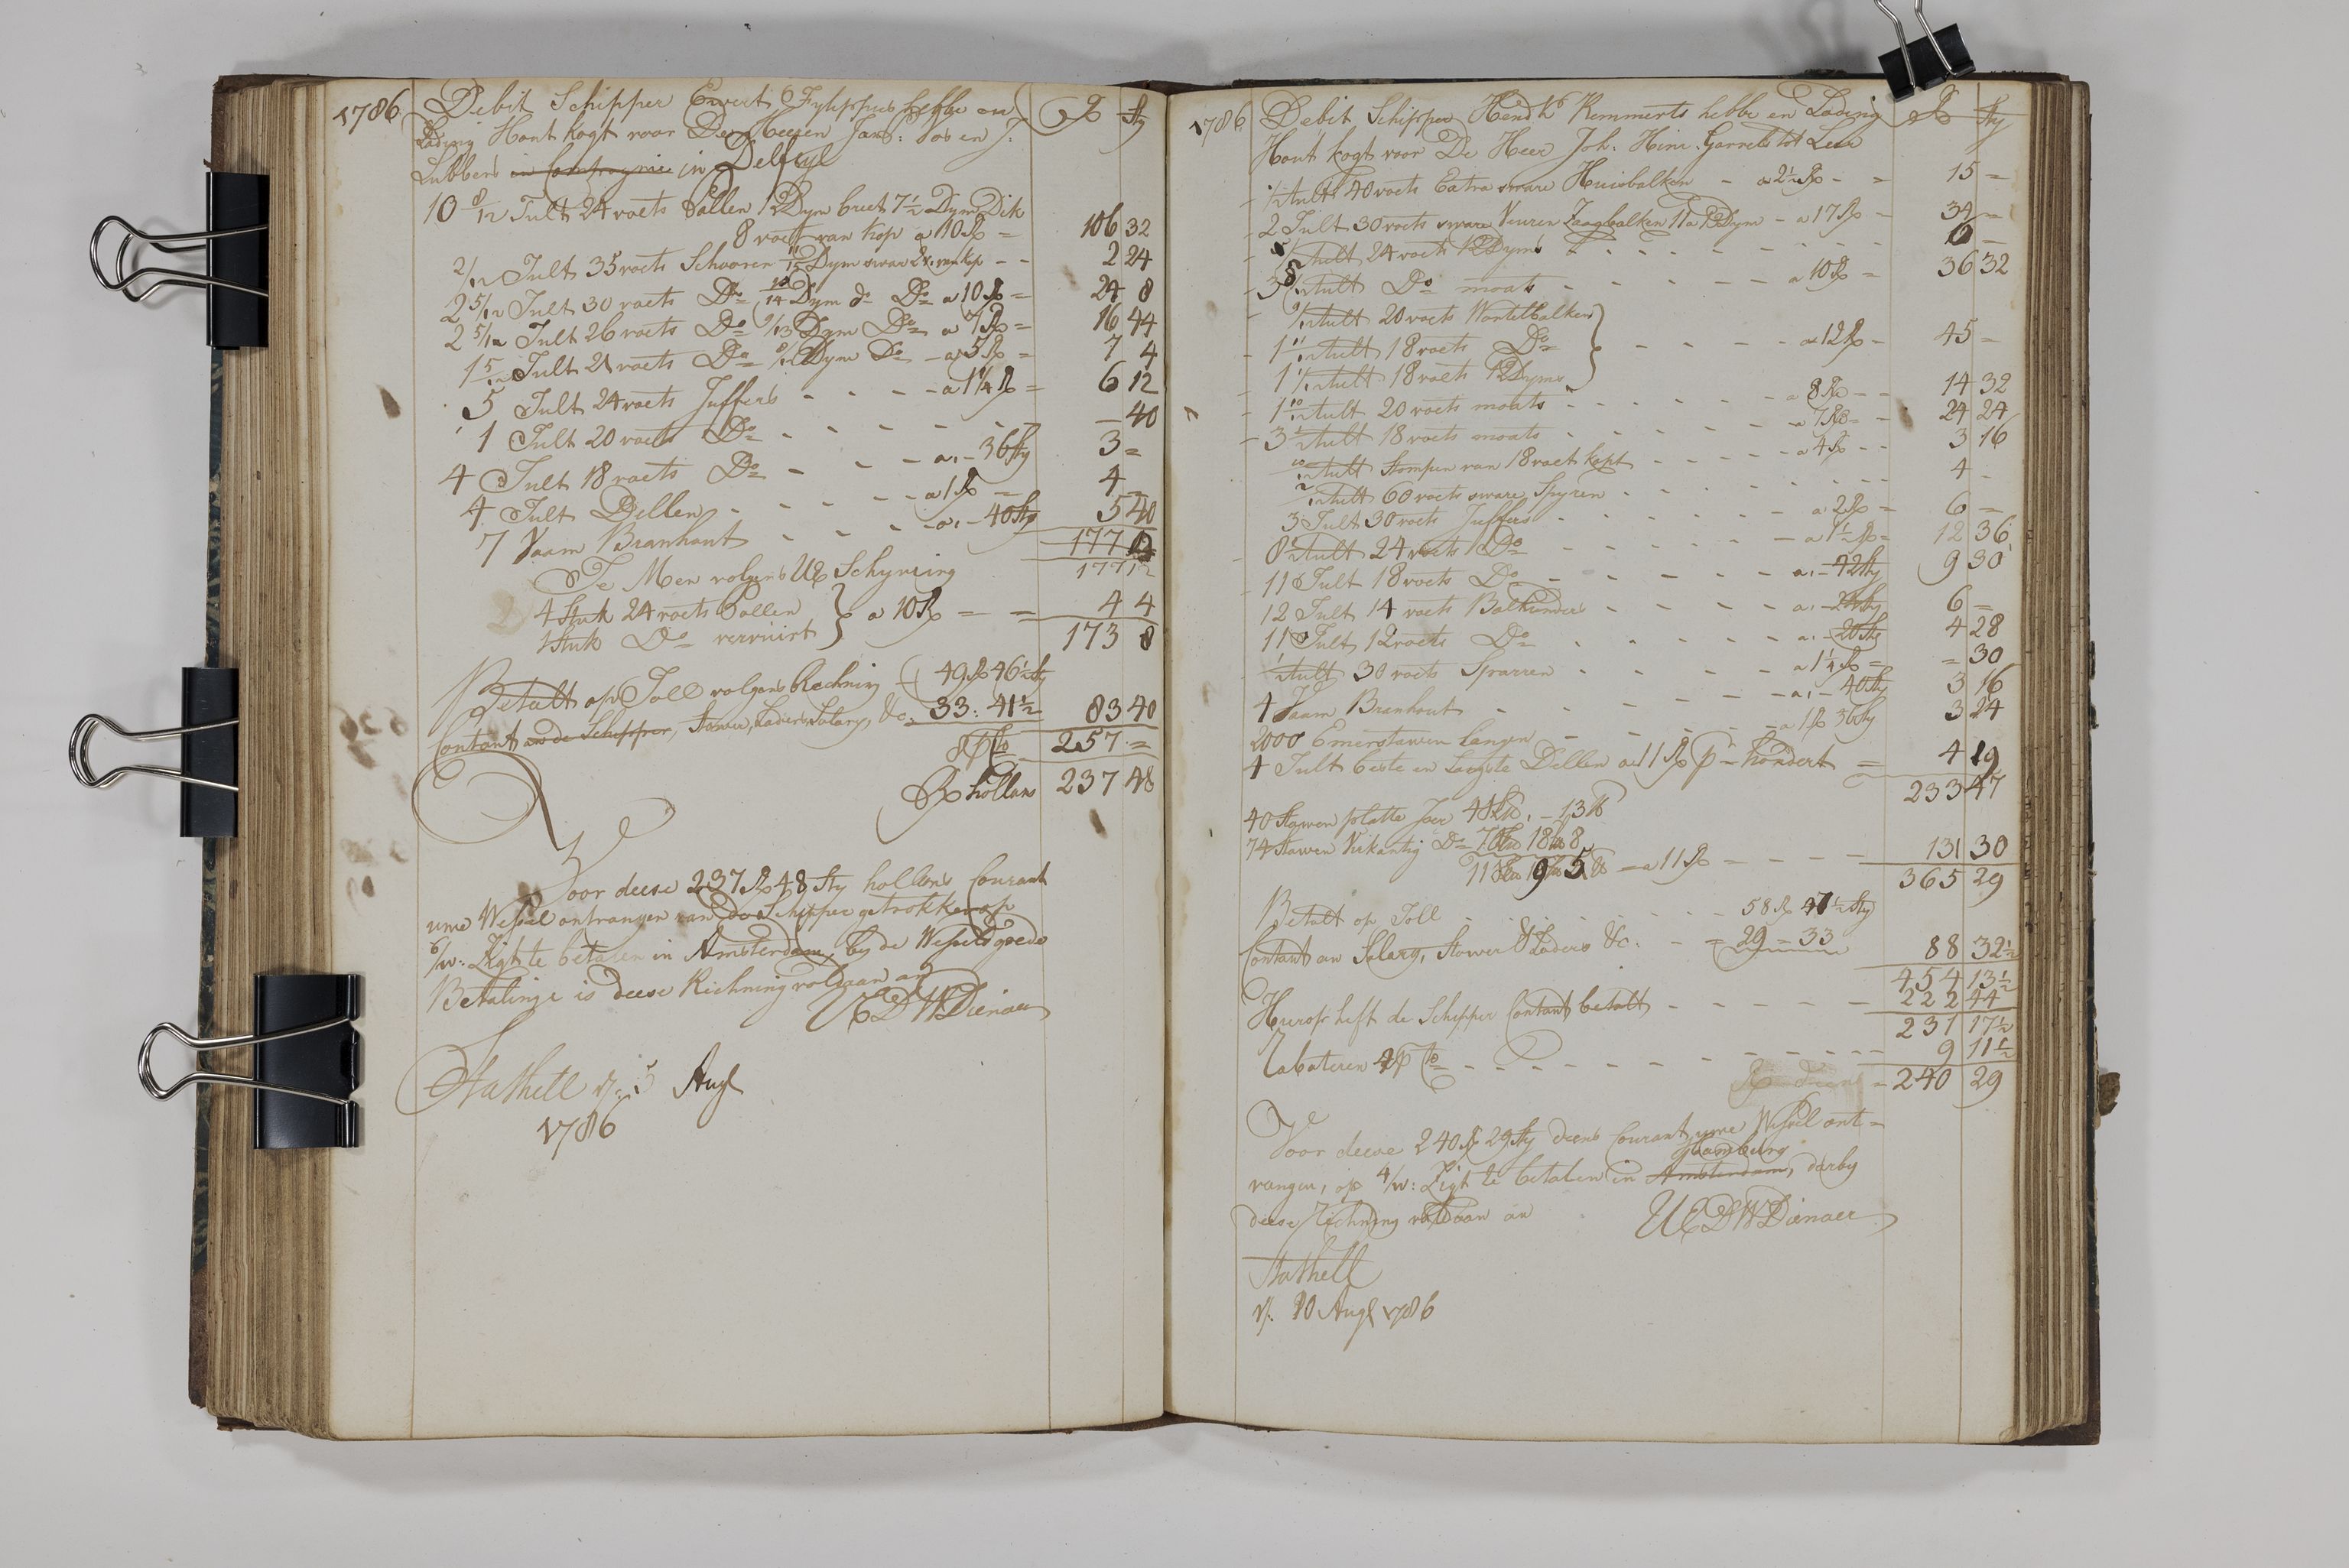 1786 Debit Schipper Evert Fylippus hebbe en Rd Sty
Lading Hout kogt voor De Heeren Jans: Vos en J:
Lubbers in Compagnie in Delfzyl
10 8/12 Tult 24 voets Ballen 12 Dym breet 7 1/2 Dym Dik
8 voet van kop a 10 Rd = 106 32
2/12 Tult 35 voets Schooren 11/15 Dym swaar 8 v: van kop - - 2 24
2 5/12 Tult 30 voets Do 10/14 Dym do Do a 10 Rd = 24 8
2 5/12 Tult 26 voets Do 9/13 Dym Do a 7 Rd = 16 44
1 5/12 Tult 21 voets Do 8/12 Dym Do - a 5 Rd = 7 4
5 Tult 24 voets Juffers - - - a 1 1/4 Rd = 6 12
1 Tult 20 voets Do - - - - - - - 40
4 Tult 18 voets Do - - - a. - 36 Sty 3 =
4 Tult Dellen - - - - a 1 Rd = 4 -
7 Vaam Branhout - - - - a. - 40 Sty 5 40
177 12
Te Meer volgens UE Schryving 177 12
4 Stuk 24 voets Ballen } a 10 Rd = = 4 4
1 Stuk Do vervuirt
173 8
Betalt op Toll volgens Rechning 49 Rd 46 1/2 Sty
Contant an de Schipper, Stower, Laders, Salary, &c. 33: 41 1/2 83 40
257 =
Rd hollans 237 48
Voor deese 237 Rd 48 Sty hollans Courant
ume Wessel ontvangen van de Schipper getrokken op
6/w: Zigt te betalen in Amsterdam, by de Wessels goede
Betalinge is deese Rechning voldaan an
UEDWDienaer
Stathell d: 5 Augt
1786
1786 Debit Schipper Hendk Remmerts hebbe en Lading Rd Sty
Hout kogt voor De Heer Joh. Hinr. Garrels tot Leer
1/2 Tult 40 voets Extra sware Huisbalken - a 2 1/2 Rd - = 15 =
2 Tult 30 voets sware Veuren Zaagbalken 11 a 12 Dym - a 17 Rd - 34 =
Tult 24 voets 12 Dyms - - - - - - -
3 8/12 Tult Do moats - - - - - a 10 Rd = 36 32
9/12 Tult 20 voets Wortelbalken }
1 11/12 Tult 18 voets Do - - - - a 12 Rd - 45 =
1 1/12 Tult 18 voets 12 Dyms
1 10/12 Tult 20 voets moats - - - - - a 8 Rd - - 14 32
3 1/2 Tult 18 voets moats - - - - - a 7 Rd - - 24 24
10/12 Tult Stompen van 18 voet kapt - - - - a 4 Rd - - 3 16
2/12 Tult 60 voets sware Spyren - - - - - - - 4 -
3 Tult 30 voets Juffers - - - - - a 2 Rd = 6 =
8 1/2 Tult 24 voets Do - - - - - a 1 1/2 Rd = 12 36
11 Tult 18 voets Do - - - - - a. - 42 Sty 9 30
12 Tult 14 voets Balkunders - - - - a. - 24 Sty 6 =
11 Tult 12 voets Do - - - - a. - 20 Sty 4 28
1/2 Tult 30 voets Sparren - - - - a 1 1/4 Rd = = 30
4 Vaam Branhout - - - - - a. - 40 Sty 3 16
2000 Emerstawen langen - - - - a 1 Rd 36 Sty 3 24
4 Tult beste en langste Dellen a 11 Rd p hondert = 4 19
233 47
40 Stawen platte Joer
74 Stawen Virkantig Do
a 11 Rd - - - - 131 30
365 29
Betalt op Toll - - - - - - 58 Rd 47 1/2 Sty
Contant an Salary, Stower & Laders &c: - - = 29 = 33 88 32 1/2
454 13 1/2
Hierop heft de Schipper Contant betalt - - - - - 222 44
231 17 1/2
Rabateren 4 p Co - - - - - - - - - - - 9 11 1/2
Rd deens - 240 29
Voor deese 240 Rd 29 Sty deens Courant, ume Wessel ont=
Hamburg
vangen, op 4/w: Zigt te betalen in Amsterdam, darby
deese Rechning voldaan an UEDWDienaer
Stathell
d: 10 Augt 1786